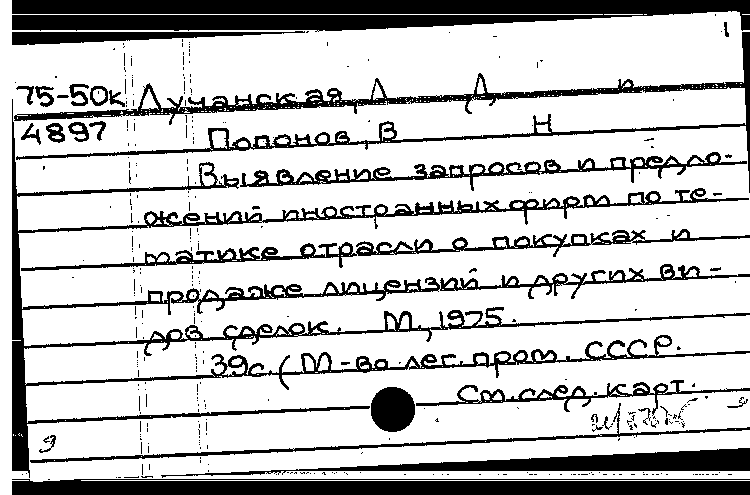 1
75-50к Лучанская, Л Д и
4897 Попонов, В Н
Выявление запросов и предло-
жений иностранных фирм по те-
матике отрасли о покупках и
продаже лицензий и других ви-
дов сделок. М., 1975.
39с. (М-во лег. пром. СССР.
См. след. карт.
9